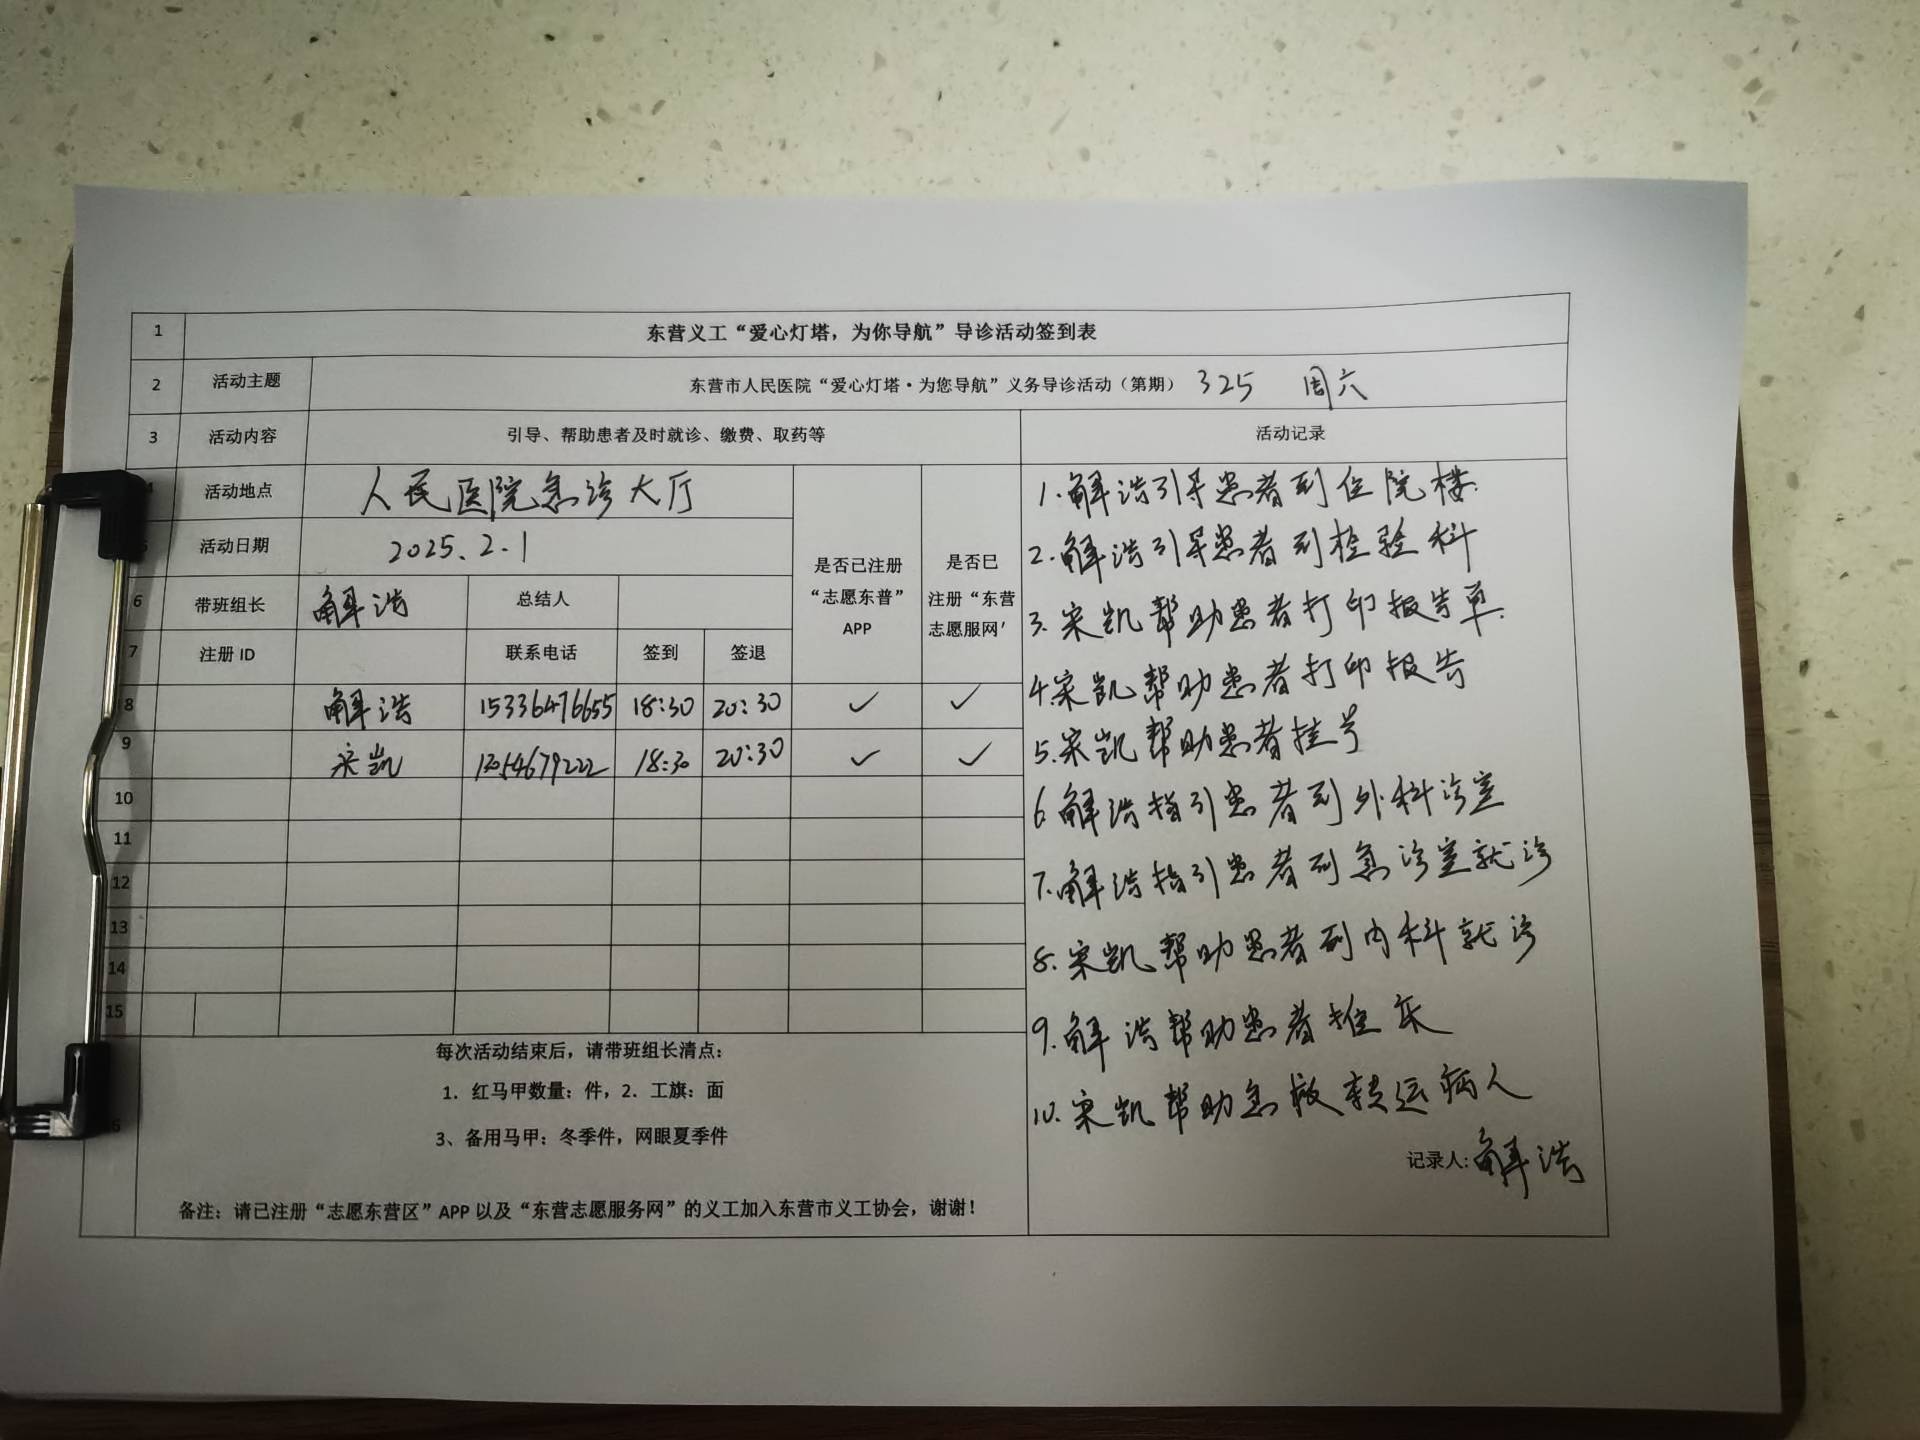 1 东营义工“爱心灯塔，为你导航”导诊活动签到表
2 活动主题 东营市人民医院“爱心灯塔·为您导航”义务导诊活动（第期） 325 周六
3 活动内容 引导、帮助患者及时就诊、缴费、取药等 活动记录
活动地点 人民医院急诊大厅
活动日期 2025.2.1
是否已注册
“志愿东普”
APP
是否巳
注册“东营
志愿服网’
6 带班组长 解浩 总结人
7 注册 ID 联系电话 签到 签退
8 解浩 15336476655 18:30 20:30 ✓ ✓
9 宋凯 18:30 20:30 ✓ ✓
10
11
12
13
14
15
1.解浩引导患者到住院楼.
2.解浩引导患者到检验科
3.宋凯帮助患者打印报告单.
4.宋凯帮助患者打印报告
5.宋凯帮助患者挂号
6 解浩指引患者到外科诊室
7.解浩指引患者到急诊室就诊
8.宋凯帮助患者到内科就诊
9.解浩帮助患者推床
10.宋凯帮助急救转运病人
记录人: 解浩
每次活动结束后，请带班组长清点：
1．红马甲数量：件，2．工旗：面
3、备用马甲：冬季件，网眼夏季件
备注：请已注册“志愿东营区”APP 以及“东营志愿服务网”的义工加入东营市义工协会，谢谢！